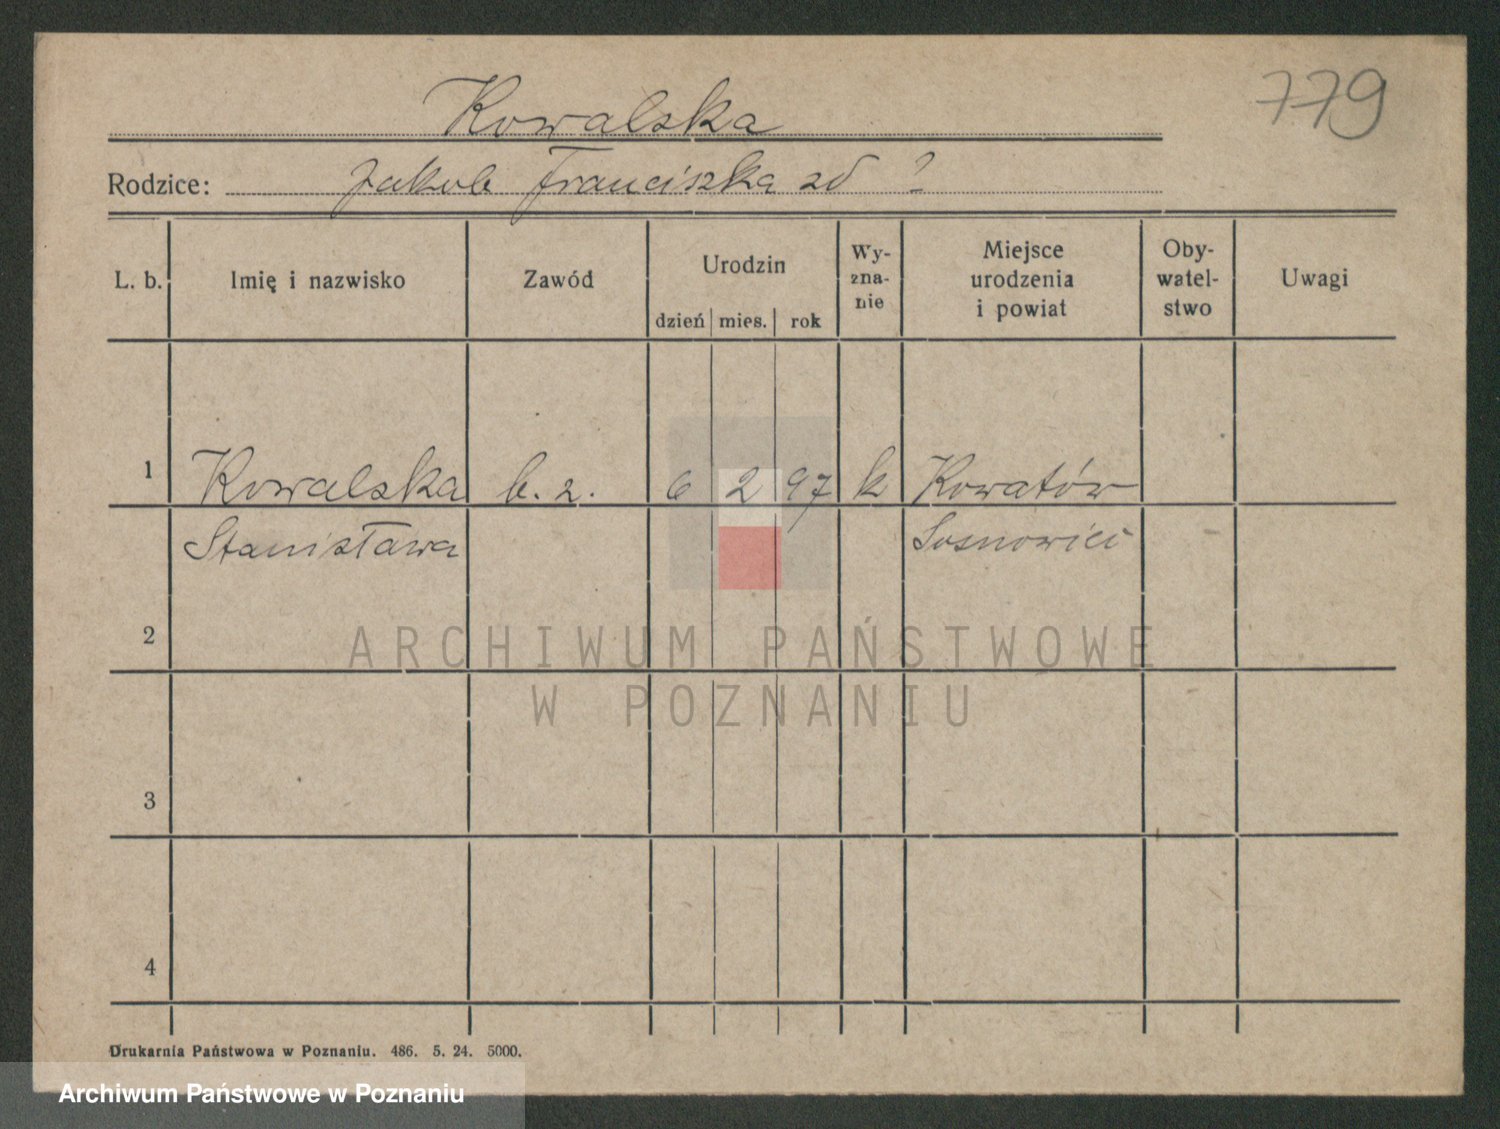 Kowalska
779
Rodzice: Jakób Franciszka zd ?
L. b. Imię i nazwisko Zawód Urodzin dzień mies. rok Wy-
zna-
nie Miejsce
urodzenia
i powiat Oby-
watel-
stwo Uwagi
1 Kowalska b. z. 6 2 97 k Kowatów
Stanisława Sosnowici
2
3
4
ARCHIWUM PAŃSTWOWE
W POZNANIU
Drukarnia Państwowa w Poznaniu. 486. 5. 24. 5000.
Archiwum Państwowe w Poznaniu